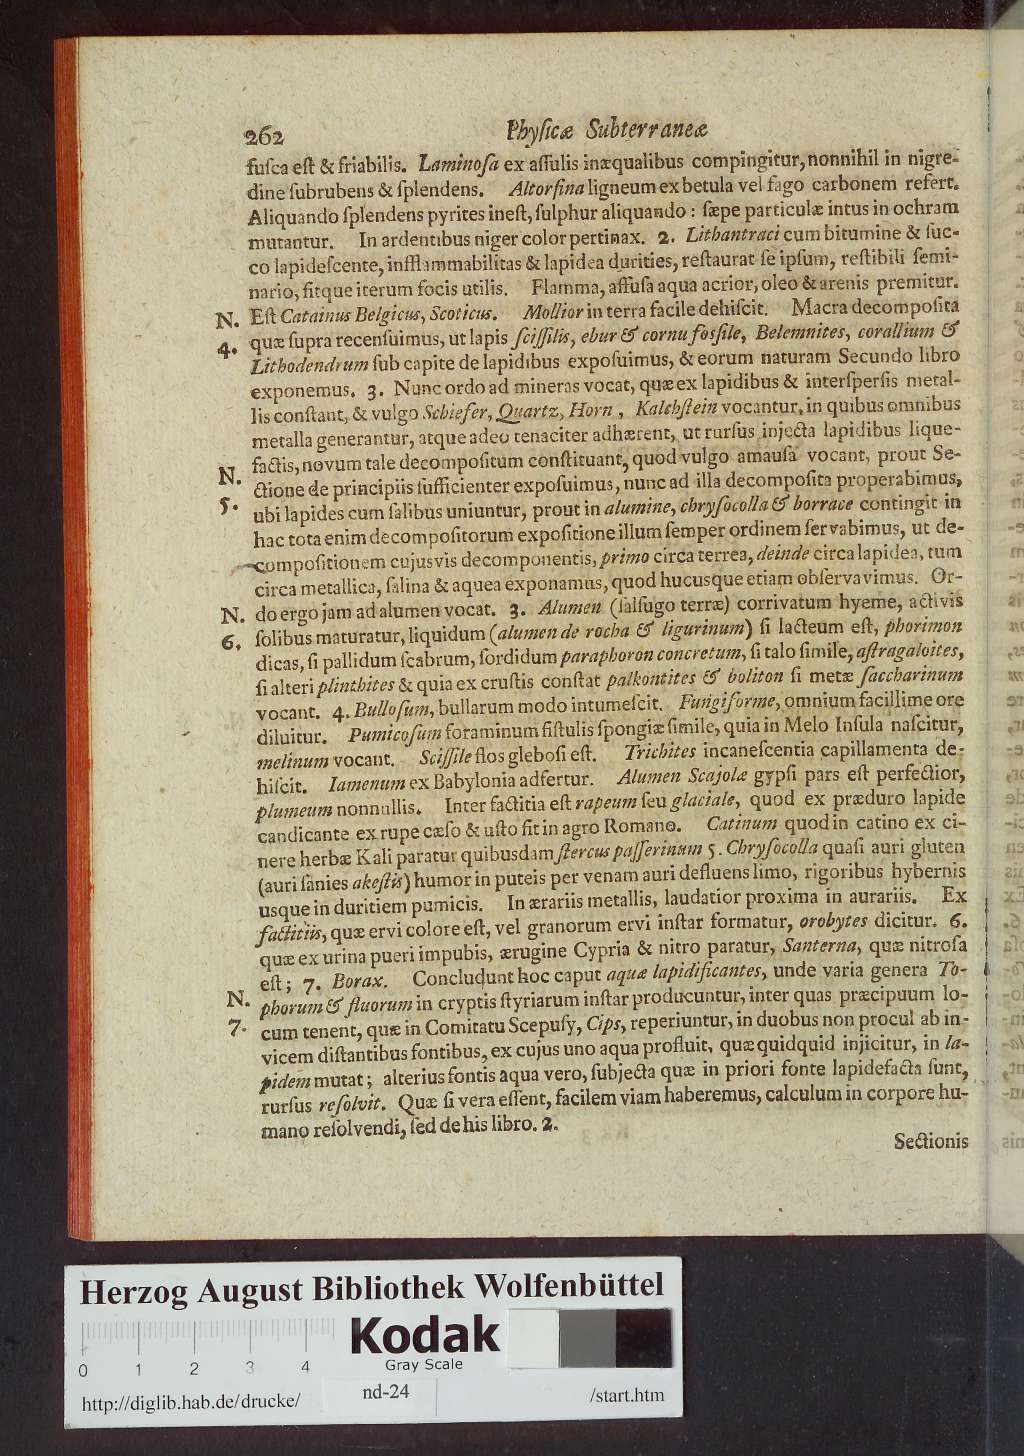 262 Phyſicæ Subterraneæ
fuſca eſt & friabilis. Laminoſa ex aſſulis inæqualibus compingitur, nonnihil in nigre-
dine ſubrubens & ſplendens. Altorfina ligneum ex betula vel fago carbonem refert.
Aliquando ſplendens pyrites ineſt, ſulphur aliquando : ſæpe particulæ intus in ochram
mutantur. In ardentibus niger color pertinax. 2. Lithantraci cum bitumine & ſuc-
co lapideſcente, inflammabilitas & lapidea durities, reſtaurat ſe ipſum, reſtibili ſemi-
nario, ſitque iterum focis utilis. Flamma, affuſa aqua acrior, oleo & arenis premitur.
N. Eſt Catainus Belgicus, Scoticus. Mollior in terra facile dehiſcit. Macra decompoſita
4. quæ ſupra recenſuimus, ut lapis ſciſſilis, ebur & cornu foſſile, Belemnites, corallium &
Lithodendrum ſub capite de lapidibus expoſuimus, & eorum naturam Secundo libro
exponemus. 3. Nunc ordo ad mineras vocat, quæ ex lapidibus & interſperſis metal-
lis conſtant, & vulgo Schiefer, Quartz, Horn, Kalchſtein vocantur, in quibus omnibus
metalla generantur, atque adeo tenaciter adhærent, ut rurſus injecta lapidibus lique-
N. factis, novum tale decompoſitum conſtituant, quod vulgo amauſa vocant, prout Se-
ctione de principiis ſufficienter expoſuimus, nunc ad illa decompoſita properabimus,
5. ubi lapides cum ſalibus uniuntur, prout in alumine, chryſocolla & borrace contingit in
hac tota enim decompoſitorum expoſitione illum ſemper ordinem ſervabimus, ut de-
compoſitionem cujusvis decomponentis, primo circa terrea, deinde circa lapidea, tum
circa metallica, ſalina & aquea exponamus, quod hucusque etiam obſervavimus. Or-
N. do ergo jam ad alumen vocat. 3. Alumen (ſalſugo terræ) corrivatum hyeme, activis
6. ſolibus maturatur, liquidum (alumen de rocha & ligurinum) ſi lacteum eſt, phorimon
dicas, ſi pallidum ſcabrum, ſordidum paraphoron concretum, ſi talo ſimile, aſtragaloites,
ſi alteri plinthites & quia ex cruſtis conſtat palkontites & boliton ſi metæ ſaccharinum
vocant. 4. Bulloſum, bullarum modo intumeſcit. Fungiforme, omnium facillime ore
diluitur. Pumicoſum foraminum fiſtulis ſpongiæ ſimile, quia in Melo Inſula naſcitur,
melinum vocant. Sciſſile flos gleboſi eſt. Trichites incaneſcentia capillamenta de-
hiſcit. Iamenum ex Babylonia adfertur. Alumen Scajolæ gypſi pars eſt perfectior,
plumeum nonnullis. Inter factitia eſt rapeum ſeu glaciale, quod ex præduro lapide
candicante ex rupe cæſo & uſto fit in agro Romano. Catinum quod in catino ex ci-
nere herbæ Kali paratur quibusdam ſtercus paſſerinum 5. Chryſocolla quaſi auri gluten
(auri ſanies akeſtis) humor in puteis per venam auri defluens limo, rigoribus hybernis
usque in duritiem pumicis. In ærariis metallis, laudatior proxima in aurariis. Ex
factitiis, quæ ervi colore eſt, vel granorum ervi inſtar formatur, orobytes dicitur. 6.
quæ ex urina pueri impubis, ærugine Cypria & nitro paratur, Santerna, quæ nitroſa
eſt; 7. Borax. Concludunt hoc caput aquæ lapidificantes, unde varia genera To-
N. phorum & fluorum in cryptis ſtyriarum inſtar producuntur, inter quas præcipuum lo-
7. cum tenent, quæ in Comitatu Scepuſy, Cips, reperiuntur, in duobus non procul ab in-
vicem diſtantibus fontibus, ex cujus uno aqua profluit, quæ quidquid injicitur, in la-
pidem mutat; alterius fontis aqua vero, ſubjecta quæ in priori fonte lapidefacta ſunt,
rurſus reſolvit. Quæ ſi vera eſſent, facilem viam haberemus, calculum in corpore hu-
mano reſolvendi, ſed de his libro. 2.
Sectionis
Herzog August Bibliothek Wolfenbüttel
Kodak
Gray Scale
0 1 2 3 4
http://diglib.hab.de/drucke/ nd-24 /start.htm